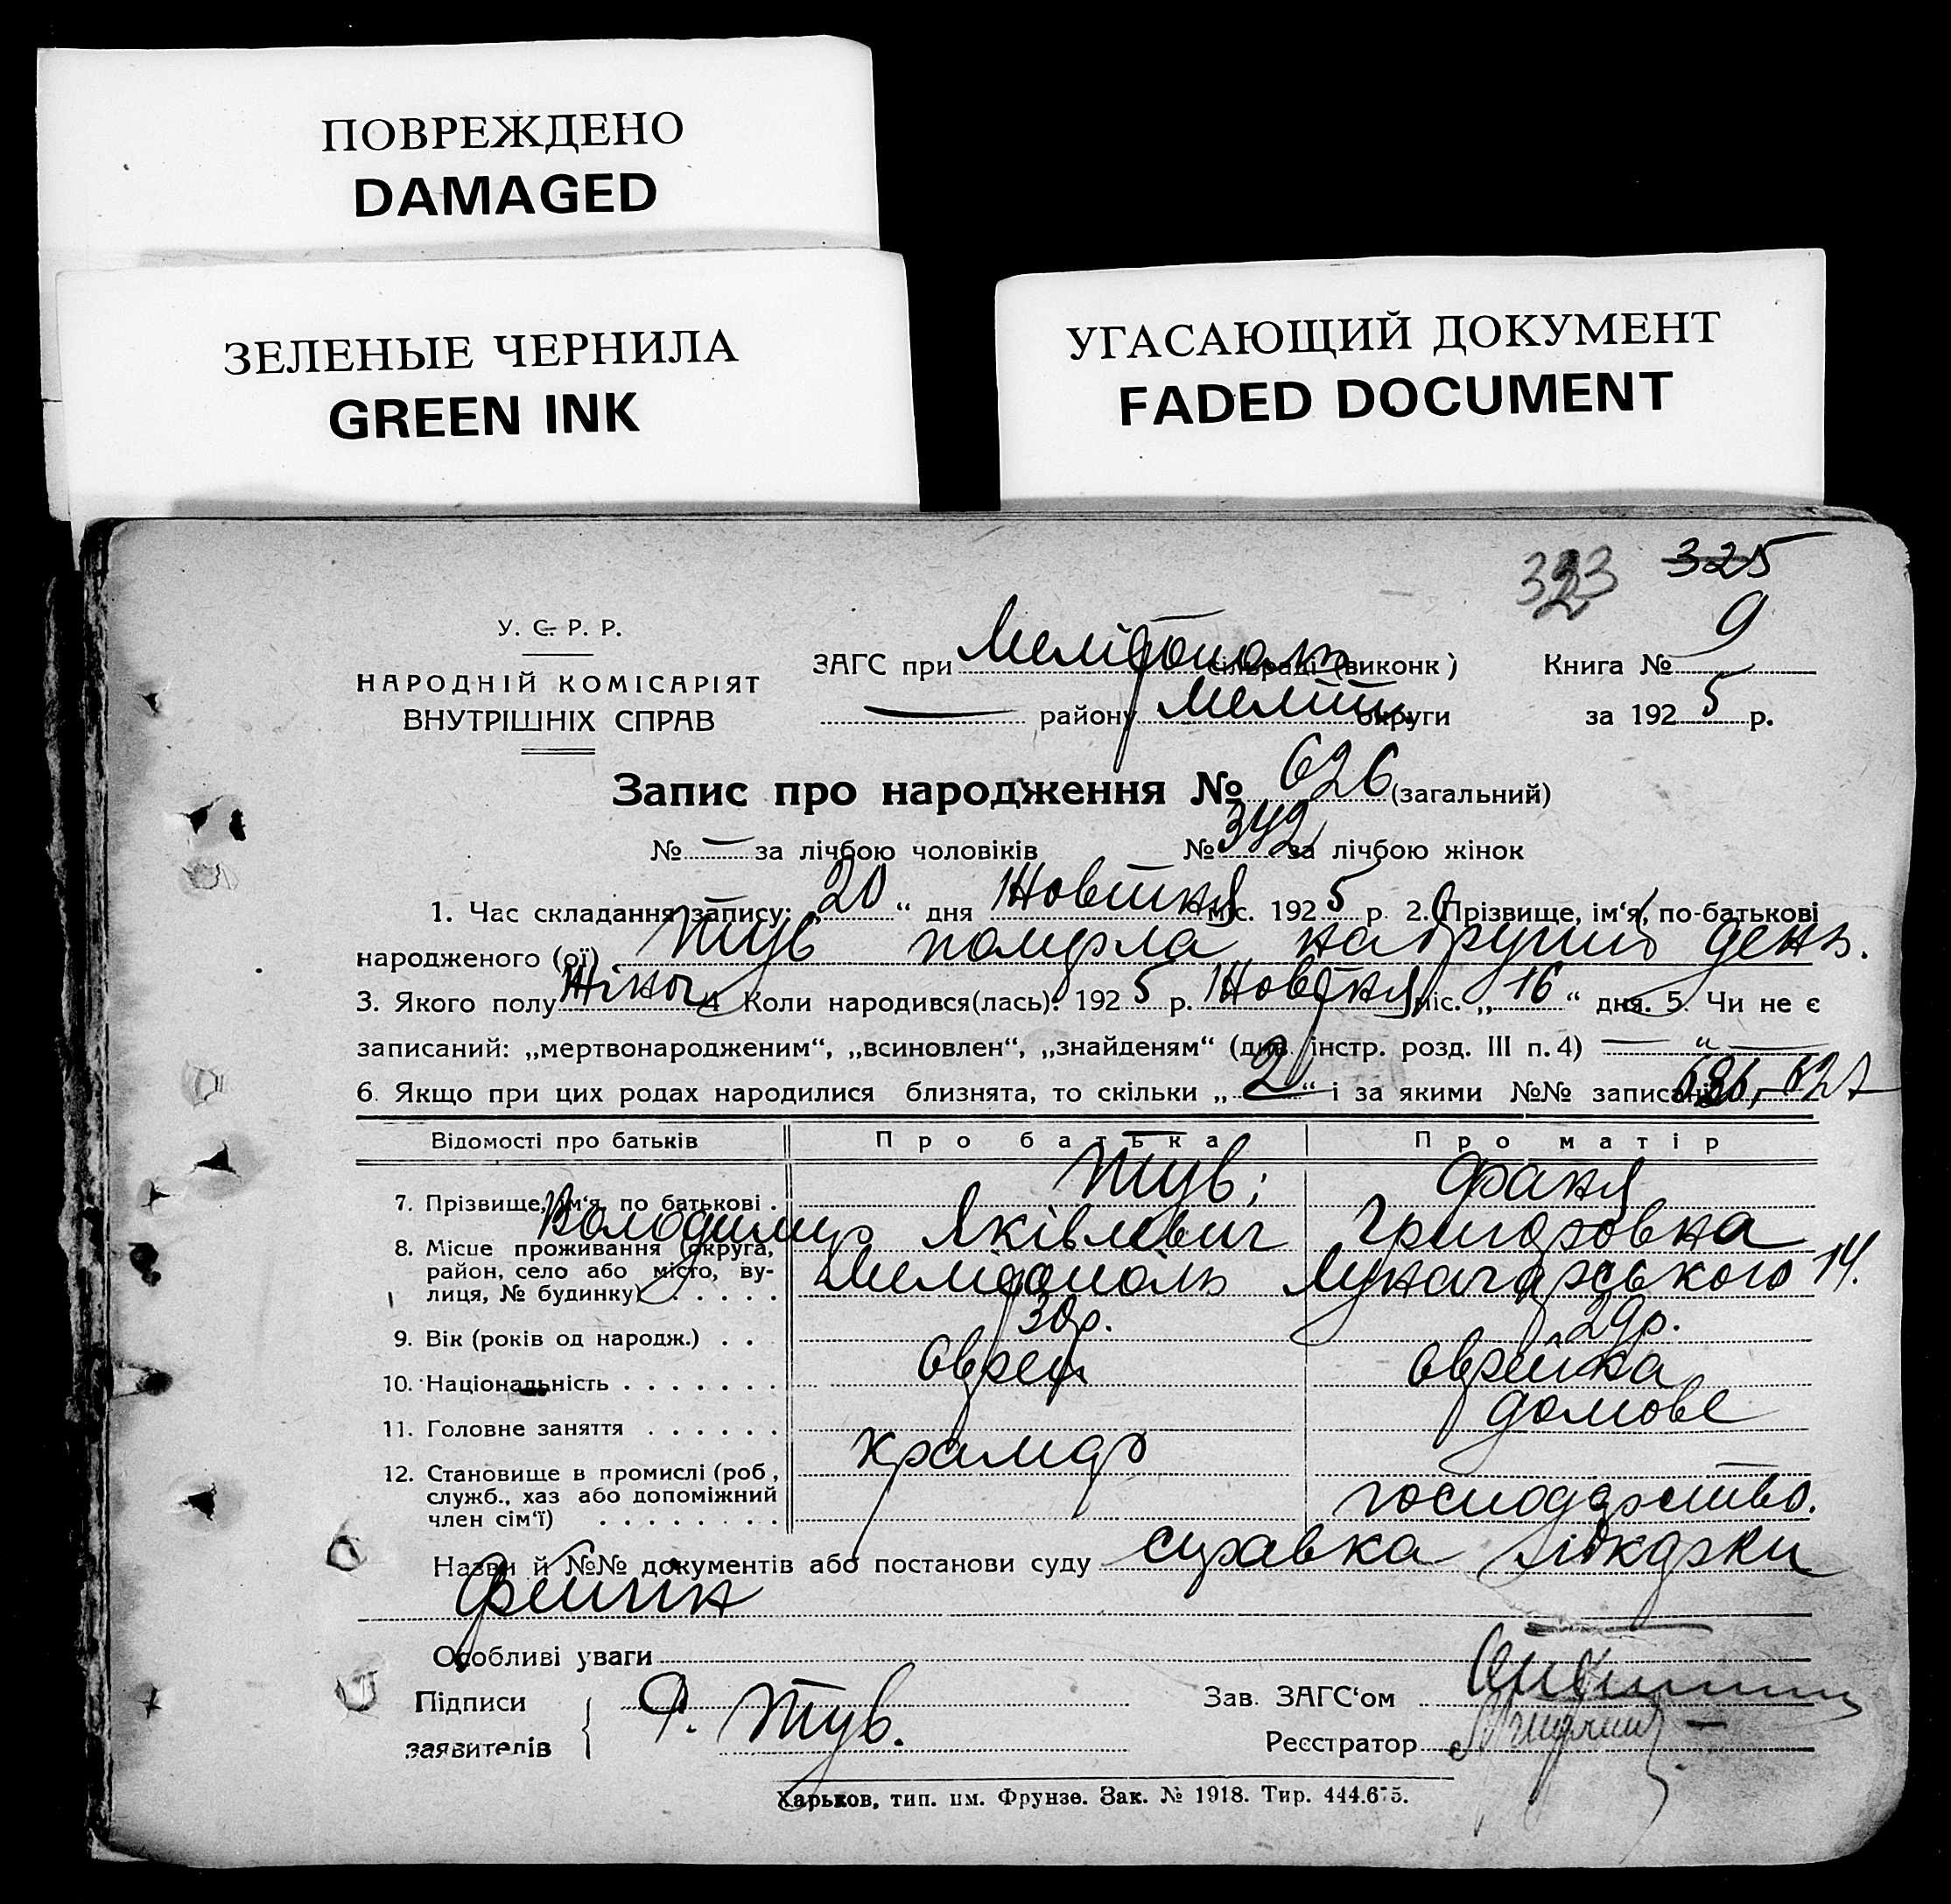 ПОВРЕЖДЕНО
DAMAGED
ЗЕЛЕНЫЕ ЧЕРНИЛА
GREEN INK
УГАСАЮЩИЙ ДОКУМЕНТ
FADED DOCUMENT
323 325
У. С. Р. Р.
НАРОДНІЙ КОМІСАРІЯТ
ВНУТРІШНІХ СПРАВ
ЗАГС при Мелітополь сільраді (виконк) Книга № 9
— району Меліт. округи за 1925 р.
Запис про народження № 626 (загальний)
№ — за лічбою чоловіків № 342 за лічбою жінок
1. Час складання запису: „20“ дня Жовтня міс. 1925 р. 2. Прізвище, ім‘я, по-батькові
народженого (ої) Тув померла на другий день.
3. Якого полу Жіноч. 4. Коли народився(лась): 1925 р. Жовтня міс. „16“ дня. 5. Чи не є
записаний: „мертвонародженим“, „всиновлен“, „знайденям“ (див. інстр. розд. III п. 4) — „ —
6. Якщо при цих родах народилися близнята, то скільки „2“ і за якими №№ записані 626, 627
Відомості про батьків Про батька Про матір
7. Прізвище, ім‘я, по батькові . Тув; Фаня
Володимир Яківлевич Григоровна
8. Місце проживання (округа,
район, село або місто, ву-
лиця, № будинку) . . . . . Мелітополь Луначарського 14.
9. Вік (років од народж.) . . 30р. 29р.
10. Національність . . . . . . . Єврей Єврейка
11. Головне заняття . . . . . . крамар домове
12. Становище в промислі (роб,
служб., хаз або допоміжний
член сім‘ї) . . . . . . . . господарство.
Назви й №№ документів або постанови суду справка лікарки
Особливі уваги
Підписи
заявителів Ф. Тув.
Зав. ЗАГС‘ом
Реєстратор
Харьков, тип. им. Фрунзе. Зак. № 1918. Тир. 444.675.